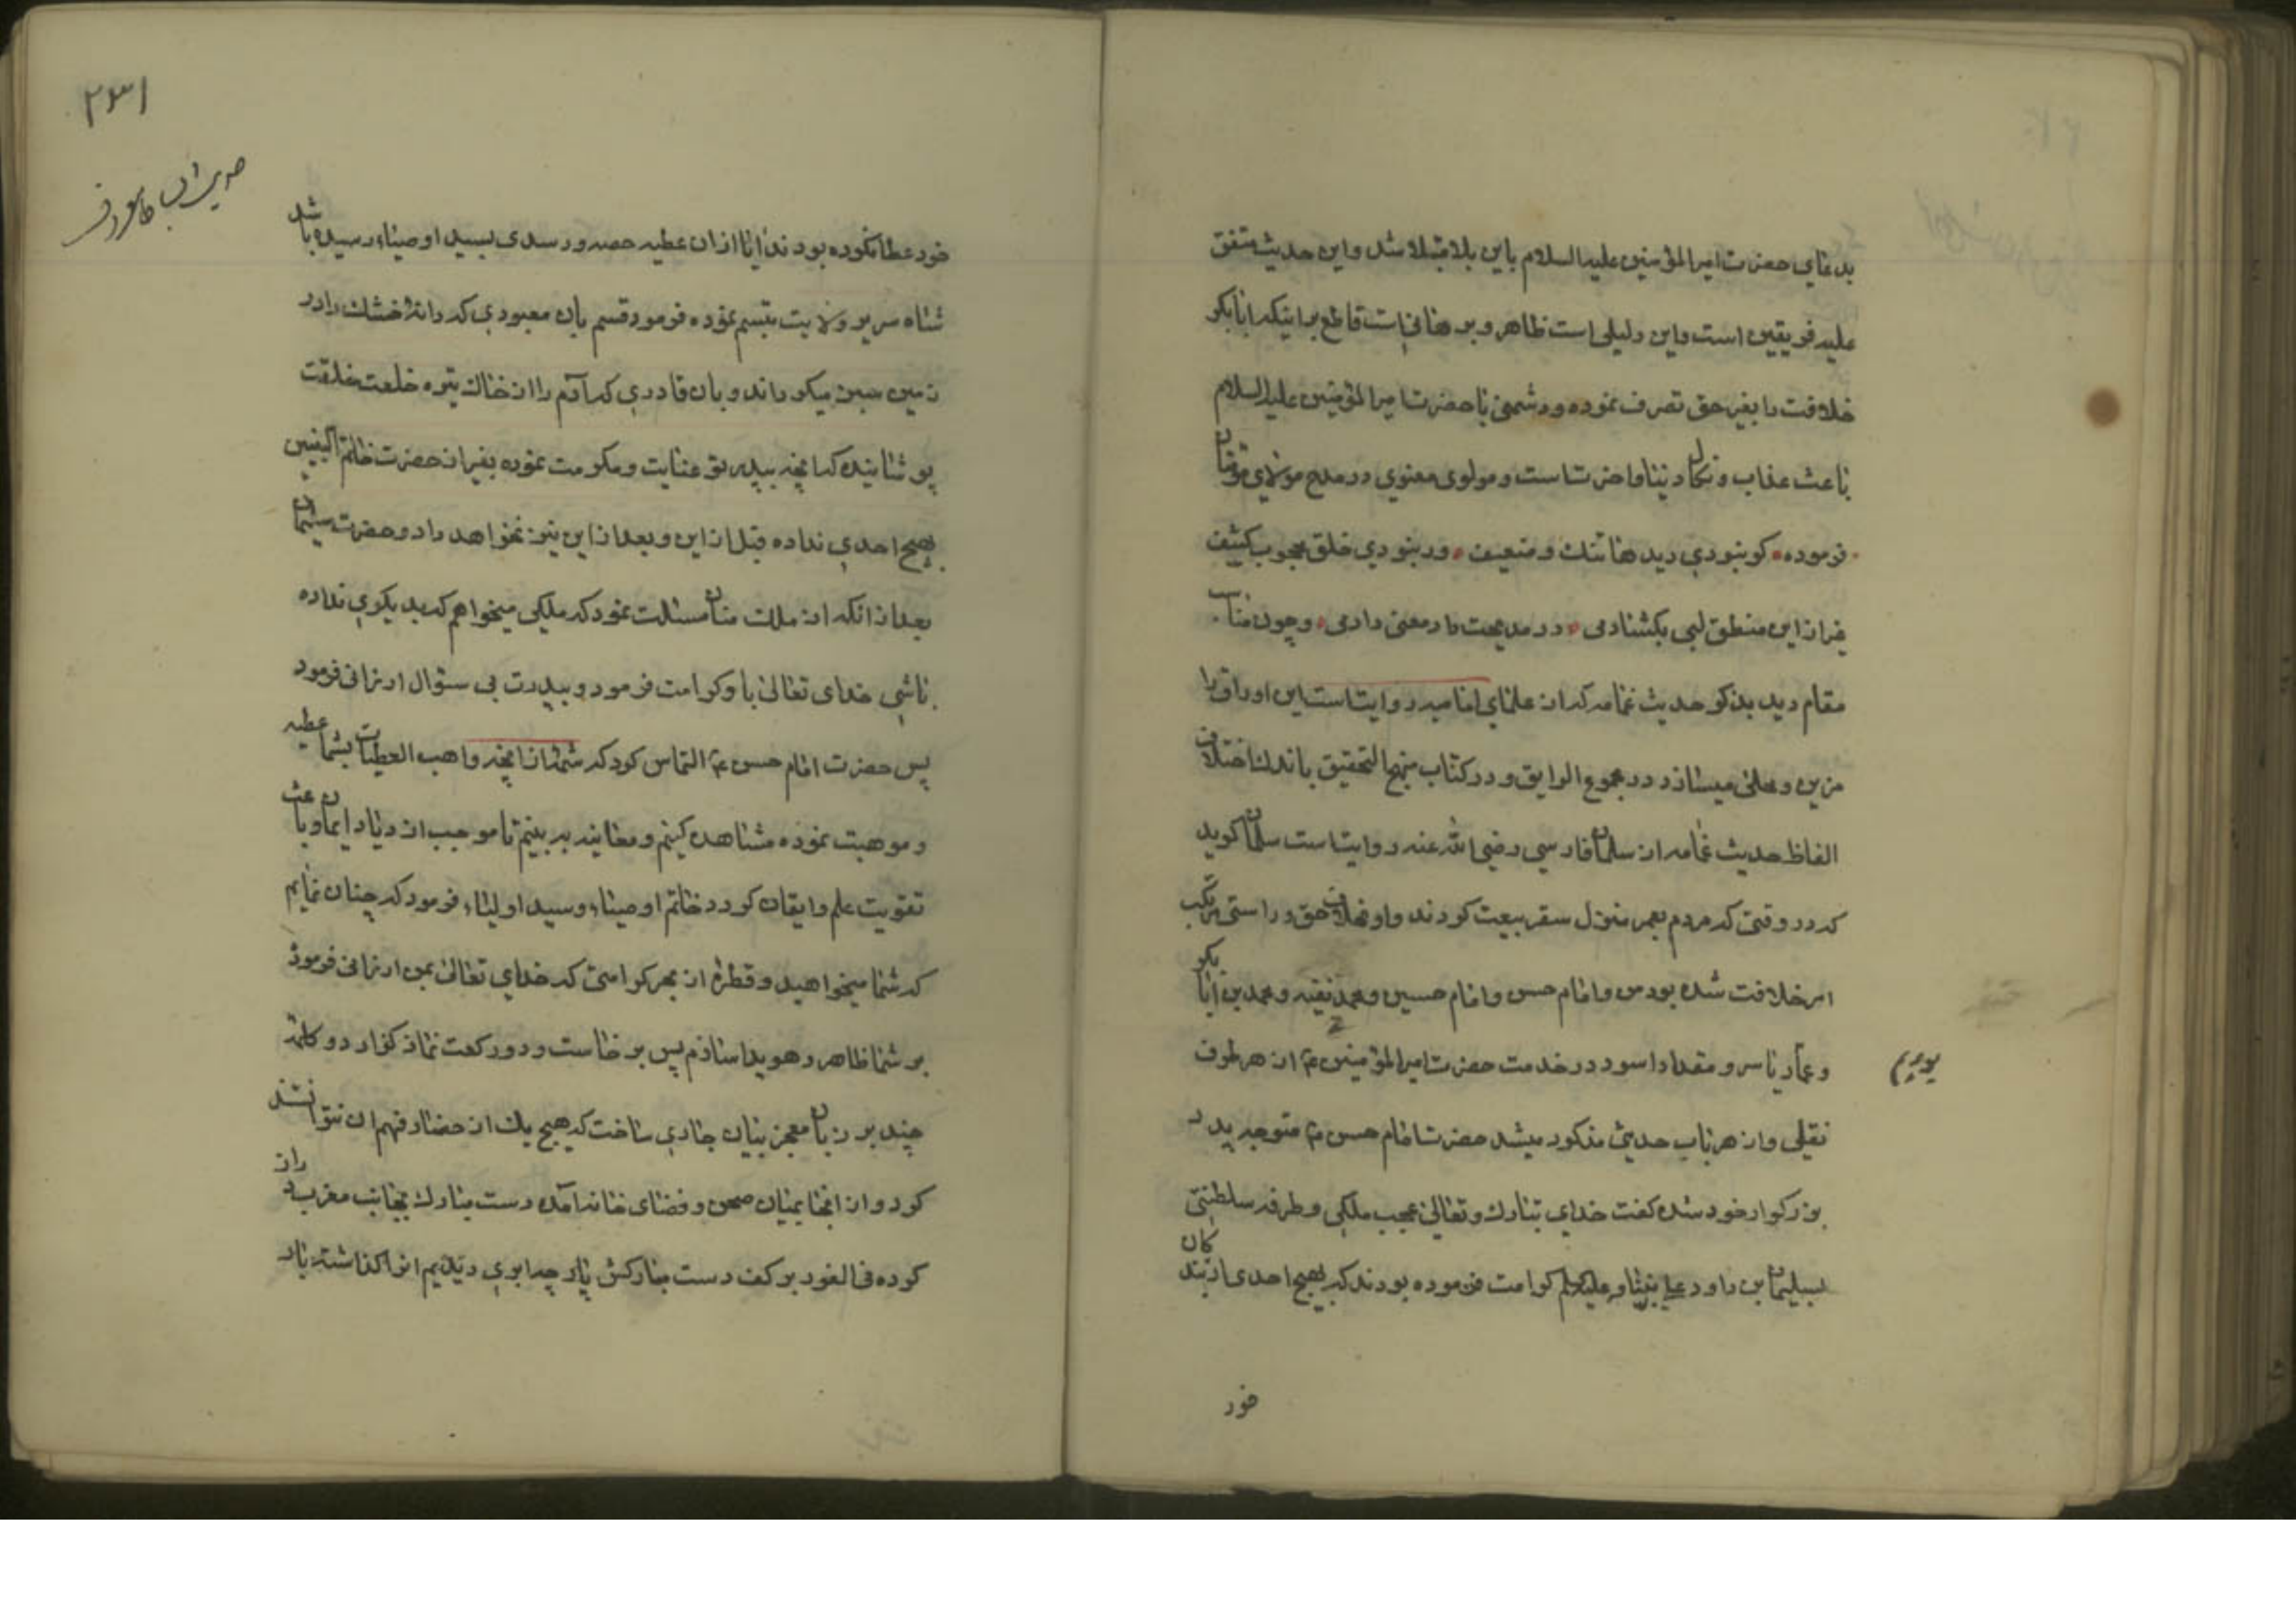 بدعای حضرت امیر المؤمنین علیه السلام باین بلا مبتلا شد و این حدیث متفق
علیه فریقین است و این دلیلی است ظاهر و برهانی است قاطع بر اینکه ابابکر
خلافت را بغیر حق تصرف نموده و دشمنی با حضرت امیر المؤمنین علیه السلام
باعث عذاب و نکال دنیا و اخرت است و مولوی معنوی در مدح مولای متقیان
فرموده کر نبودی دیدها تنک و ضعیف ور نبودی خلق محجوب کثیف
غیر از این منطق لبی بکشنادمی در مدیحت داد معنی دادمی و چون مناسب
مقام دید بذکر حدیث غمامه که از علمای امامیه روایت است این اوراق را
مزین و محلی میسازد در مجموع الرایق و در کتاب منهج التحقیق باندک اختلاف
الفاظ حدیث غمامه از سلمان فارسی رضی الله عنه روایت است سلمان کوید
که در وقتی که مردم بعمر بیعت کردند و او بخلاف حق و راستی مرتکب
امر خلافت شده بود من و امام حسن و امام حسین و محمد حنفیه و محمد بن ابابکر
و عمار یاسر و مقداد اسود در خدمت حضرت امیر المؤمنین ع از هر طرف
بودیم
نقلی و از هر باب حدیثی مذکور میشد حضرت امام حسن ع متوجه پدر
بزرکوار خود شده کفت خدای تبارک و تعالی عجب ملکی و طرفه سلطنتی
بسلیمان بن داود علی نبینا و علیه السلم کرامت فرموده بودند که بهیچ احدی از بندکان
خود
۲۳۱
خود عطا نکرده بودند ایا از ان عطیه حصه و رسدی بسید اوصیاء رسیده باشد
شاه سریر ولایت تبسم نموده فرمود قسم بان معبودی که دانهٔ خشک را در
زمین سبز میکرداند و بان قادری که آدم را از خاک تیره خلعت خلقت
پوشانیده که انچه بپدر تو عنایت و مکرمت نموده بغیر از حضرت خاتم النبیین
بهیچ احدی نداده قبل از این و بعد از این نیز نخواهد داد و حضرت سلیمان
بعد از انکه از ملک منان مسئلت نمود که ملکی میخواهم که بدیکری نداده
باشی خدای تعالی باو کرامت فرمود و بپدرت بی سئوال ارزانی فرمود
پس حضرت امام حسن ع التماس کرد که شمهٔ از انچه واهب العطیات بشما عطیه
و موهبت نموده مشاهده کنیم و معاینه به بینیم تا موجب ازدیاد ایمان و باعث
تقویت علم و ایقان کردد خاتم اوصیاء و سید اولیاء فرمود که چنان نمایم
که شما میخواهید و قطرهٔ از بحر کرامتی که خدای تعالی بمن ارزانی فرموده
بر شما ظاهر و هویدا سازم پس برخاست و دو رکعت نماز کذارد و کلمهٔ
چند بر زبان معجز بیان جاری ساخت که هیچ یک از حضار فهم ان نتوانستند
کرد و از انجا بمیان صحن و فضای خانه آمده دست مبارک بجانب مغرب دراز
کرده فی الفور بر کف دست مبارکش پارچه ابری دیدیم انرا کذاشته بار